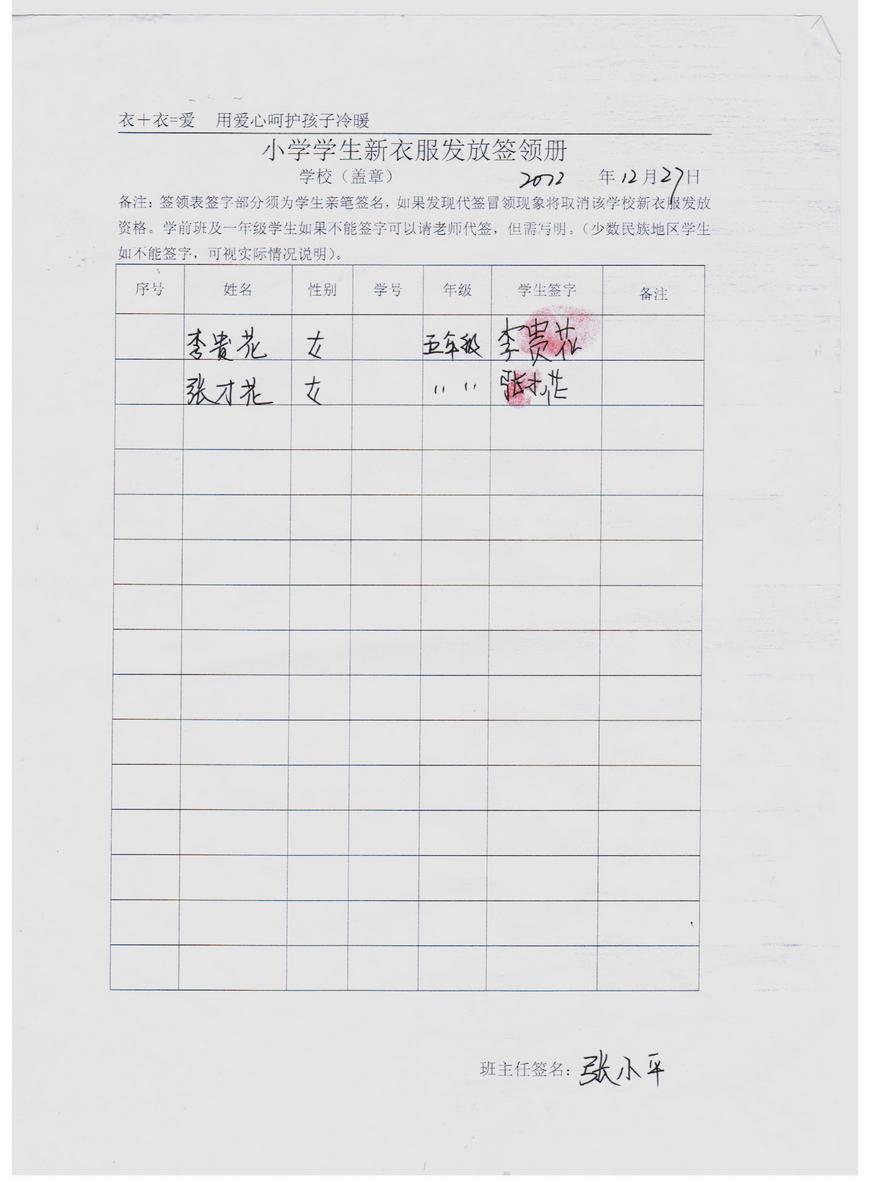 衣＋衣=爱 用爱心呵护孩子冷暖
小学学生新衣服发放签领册
学校（盖章） 2012 年12月27日
备注：签领表签字部分须为学生亲笔签名，如果发现代签冒领现象将取消该学校新衣服发放
资格。学前班及一年级学生如果不能签字可以请老师代签，但需写明。（少数民族地区学生
如不能签字，可视实际情况说明）。
序号 姓名 性别 学号 年级 学生签字 备注
李贵花 女 五年级 李贵花
张才花 女 〃 〃 张才花
班主任签名：张小平